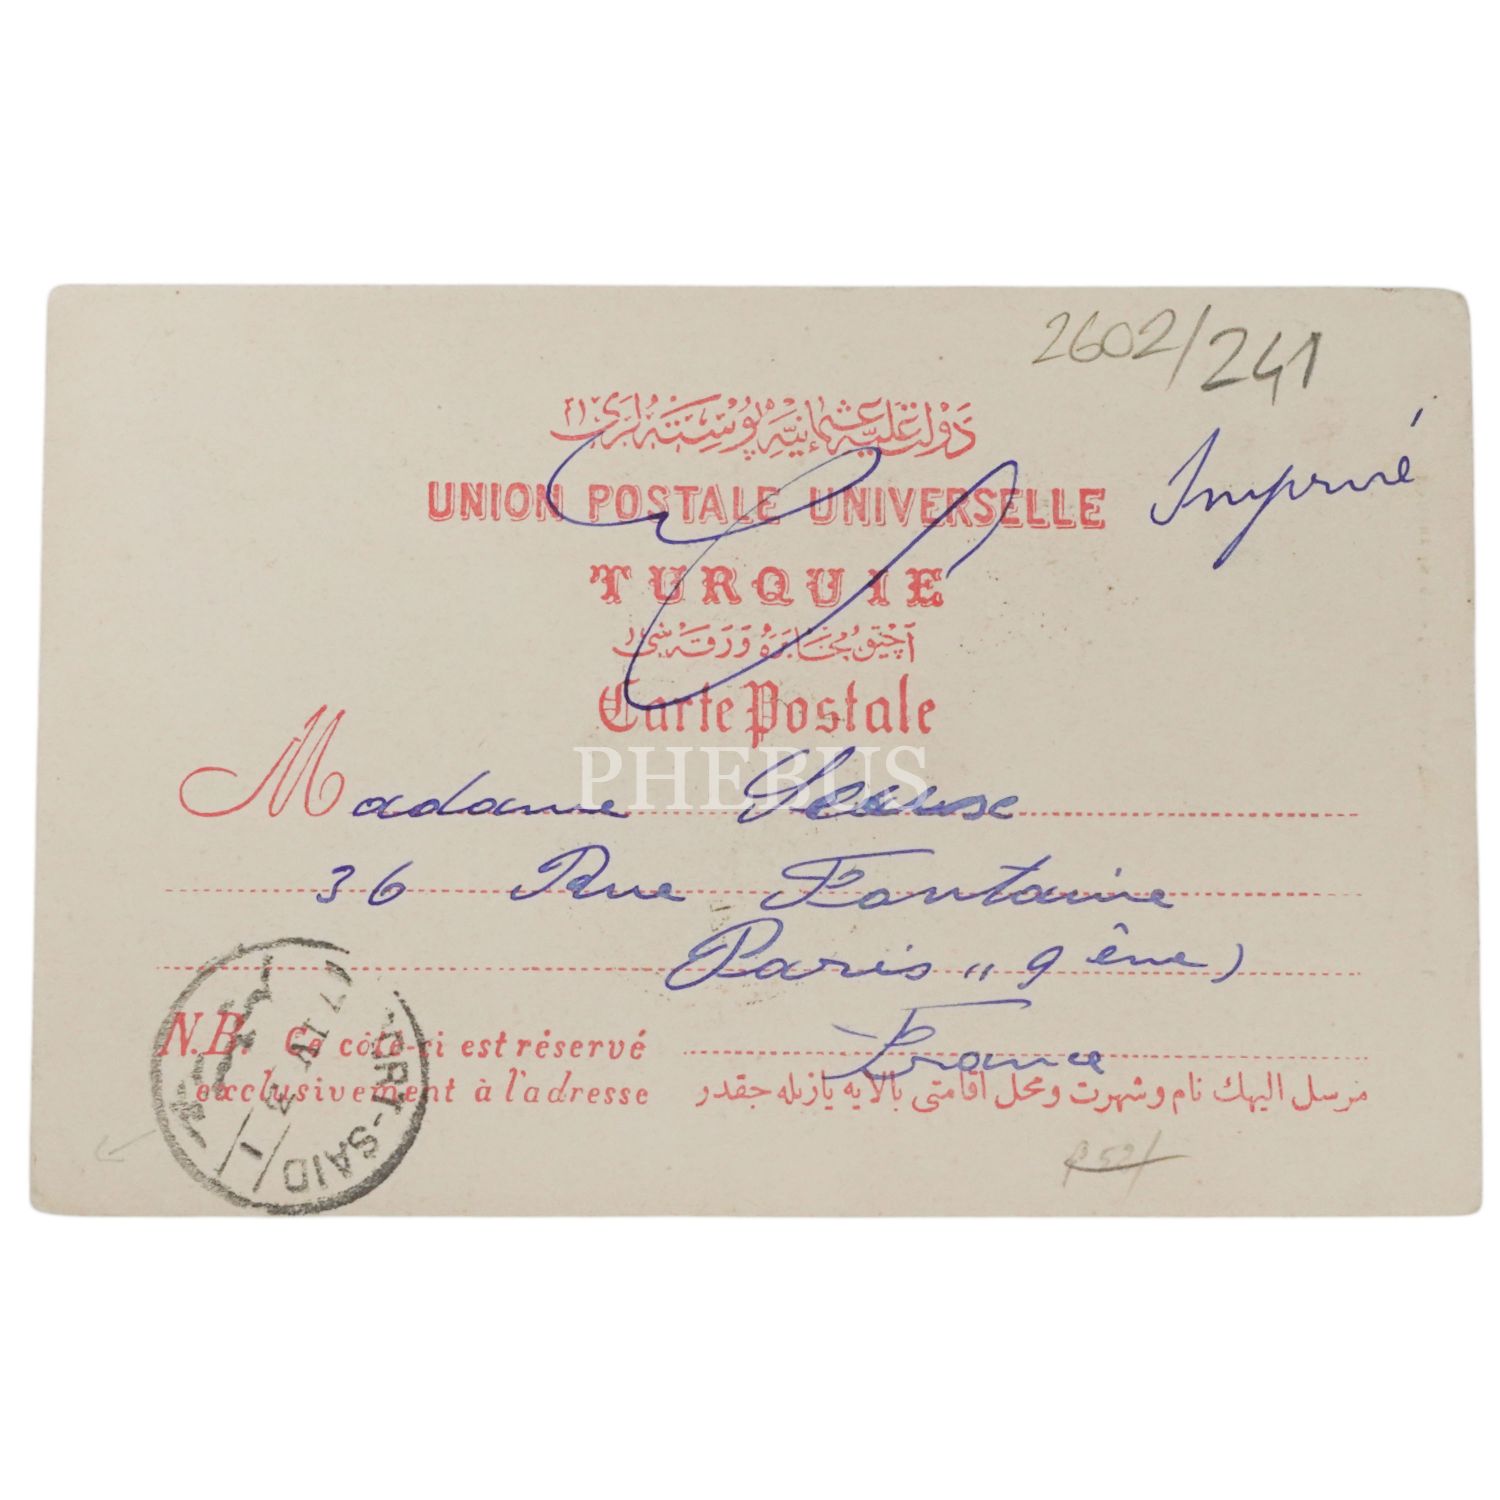 2602/241
دولت عليه عثمانيه پوسته لرى
UNION POSTALE UNIVERSELLE
Imprimé
TURQUIE
آچيق مخابره ورقه سى
Carte Postale
PHEBUS
Madame
36 Rue Fontaine
Paris "9 ème)
France
N.B. Ce côté-ci est réservé
exclusivement à l'adresse
مرسل اليهك نام وشهرت ومحل اقامتى بالايه يازيله جقدر
PORT-SAID